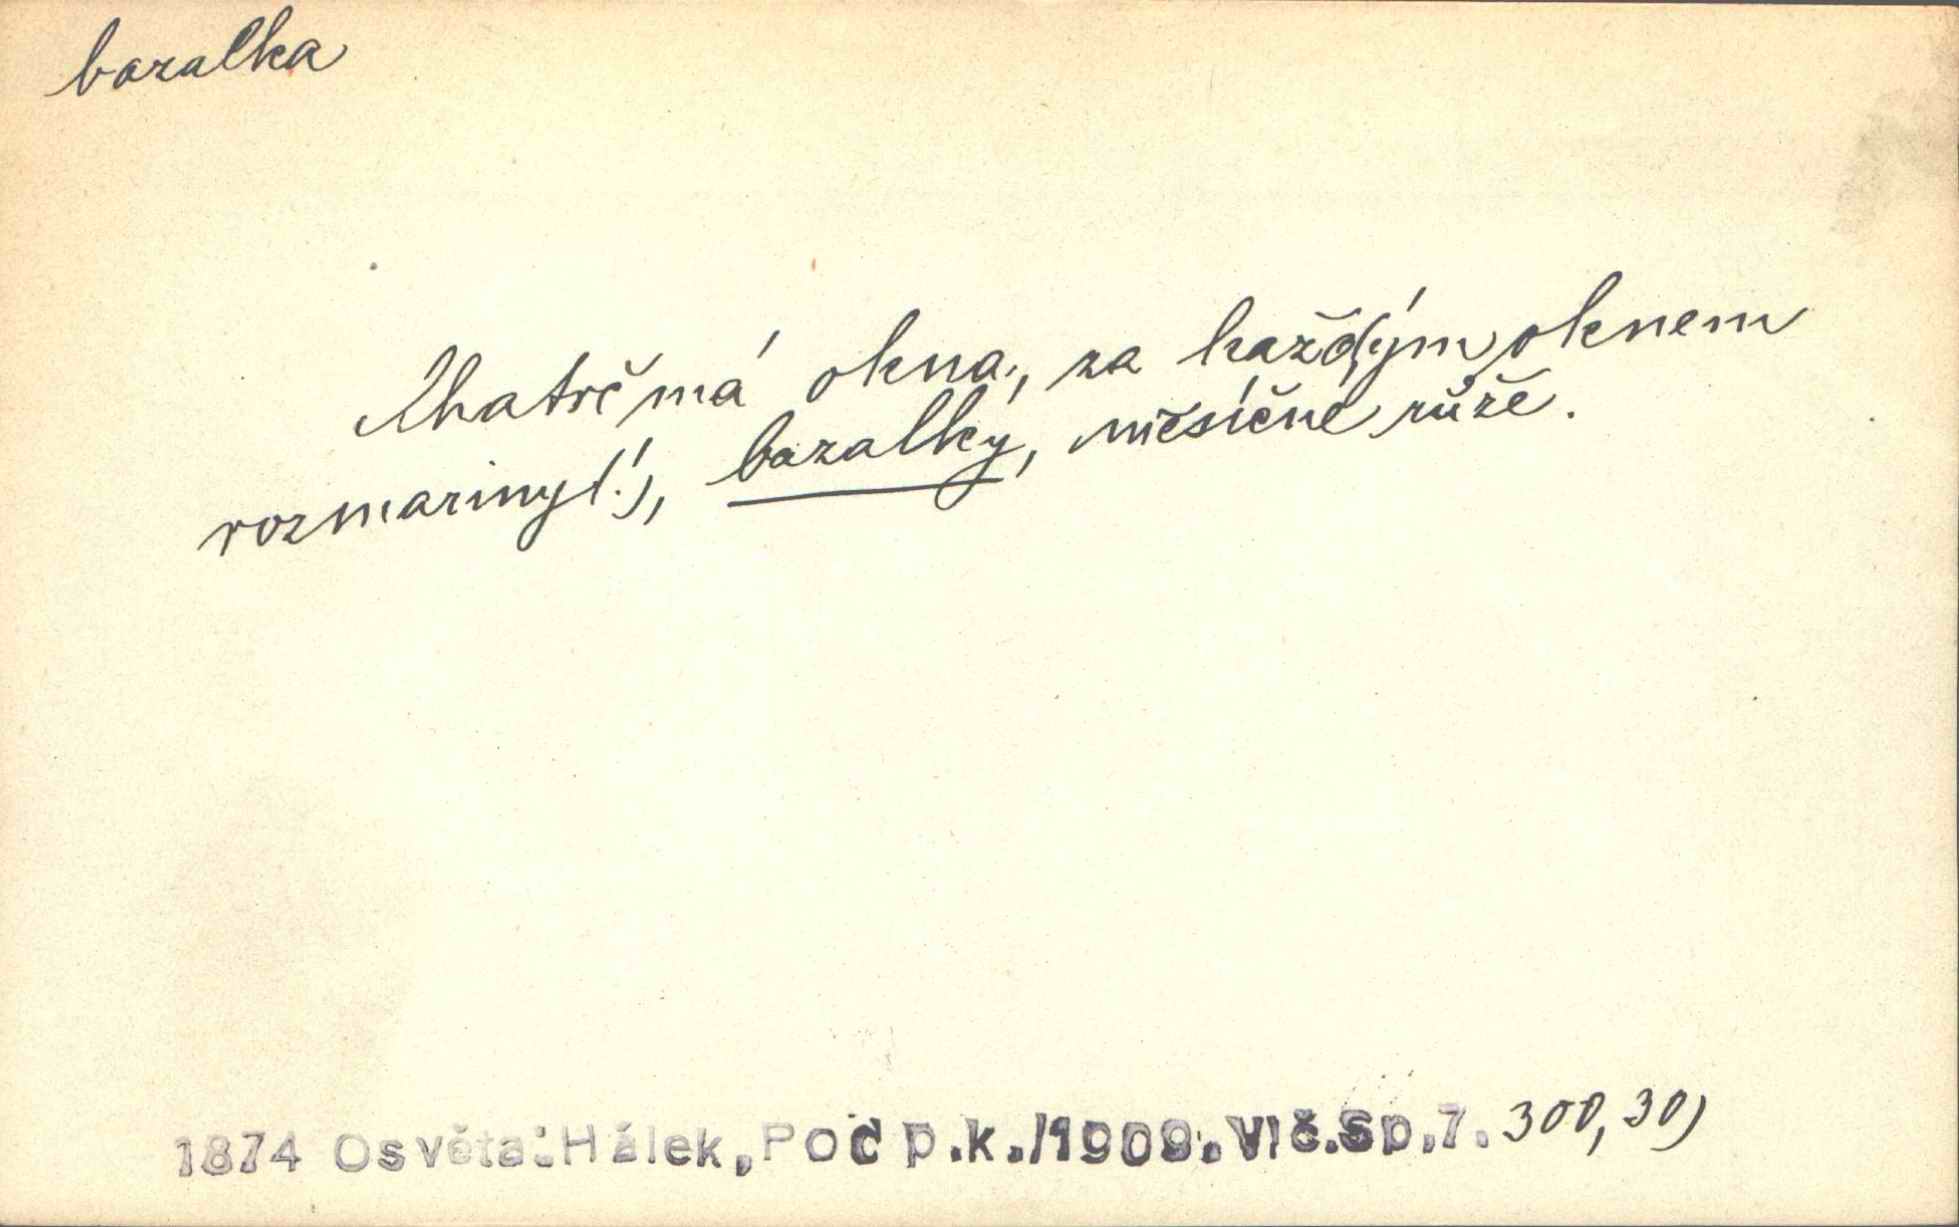 bazalka
Chatrč má okna, za každým oknem
rozmariny(!), bazalky, měsíčné růže.
1874 Osvěta:Hálek,Pod p.k./1909.Vlč.Sp.7. 300,30)